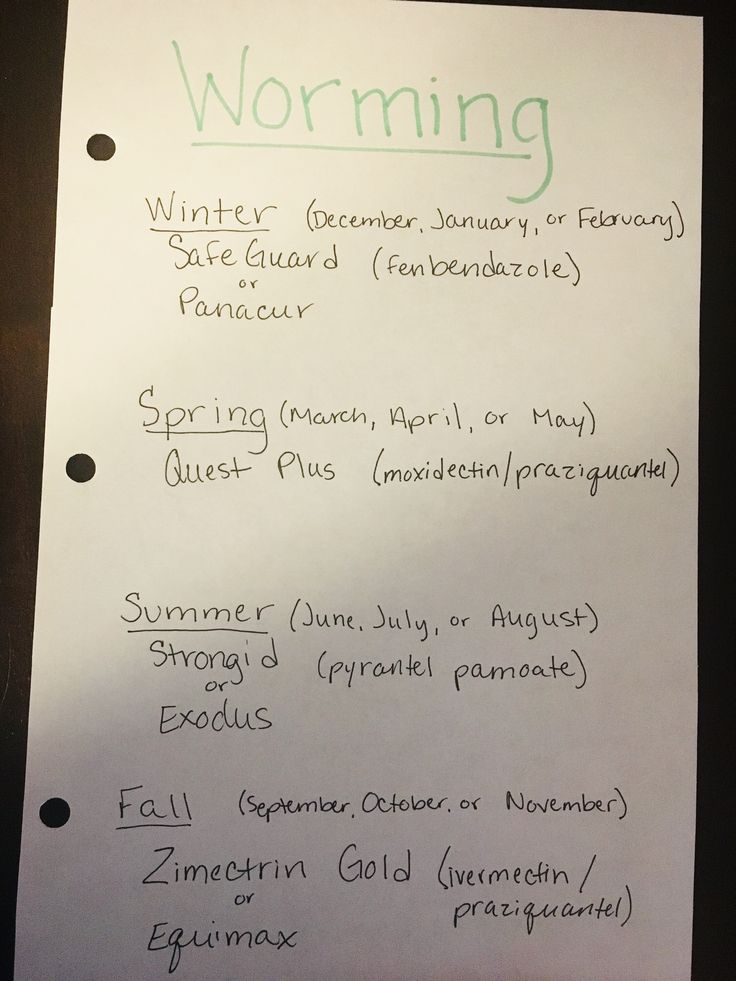 Worming
Winter (December, January, or February)
Safe Guard (fenbendazole)
or
Panacur
Spring (March, April, or May)
Quest Plus (moxidectin/praziquantel)
Summer (June, July, or August)
Strongid (pyrantel pamoate)
or
Exodus
Fall (September, October, or November)
Zimectrin Gold (ivermectin/
or praziquantel)
Equimax